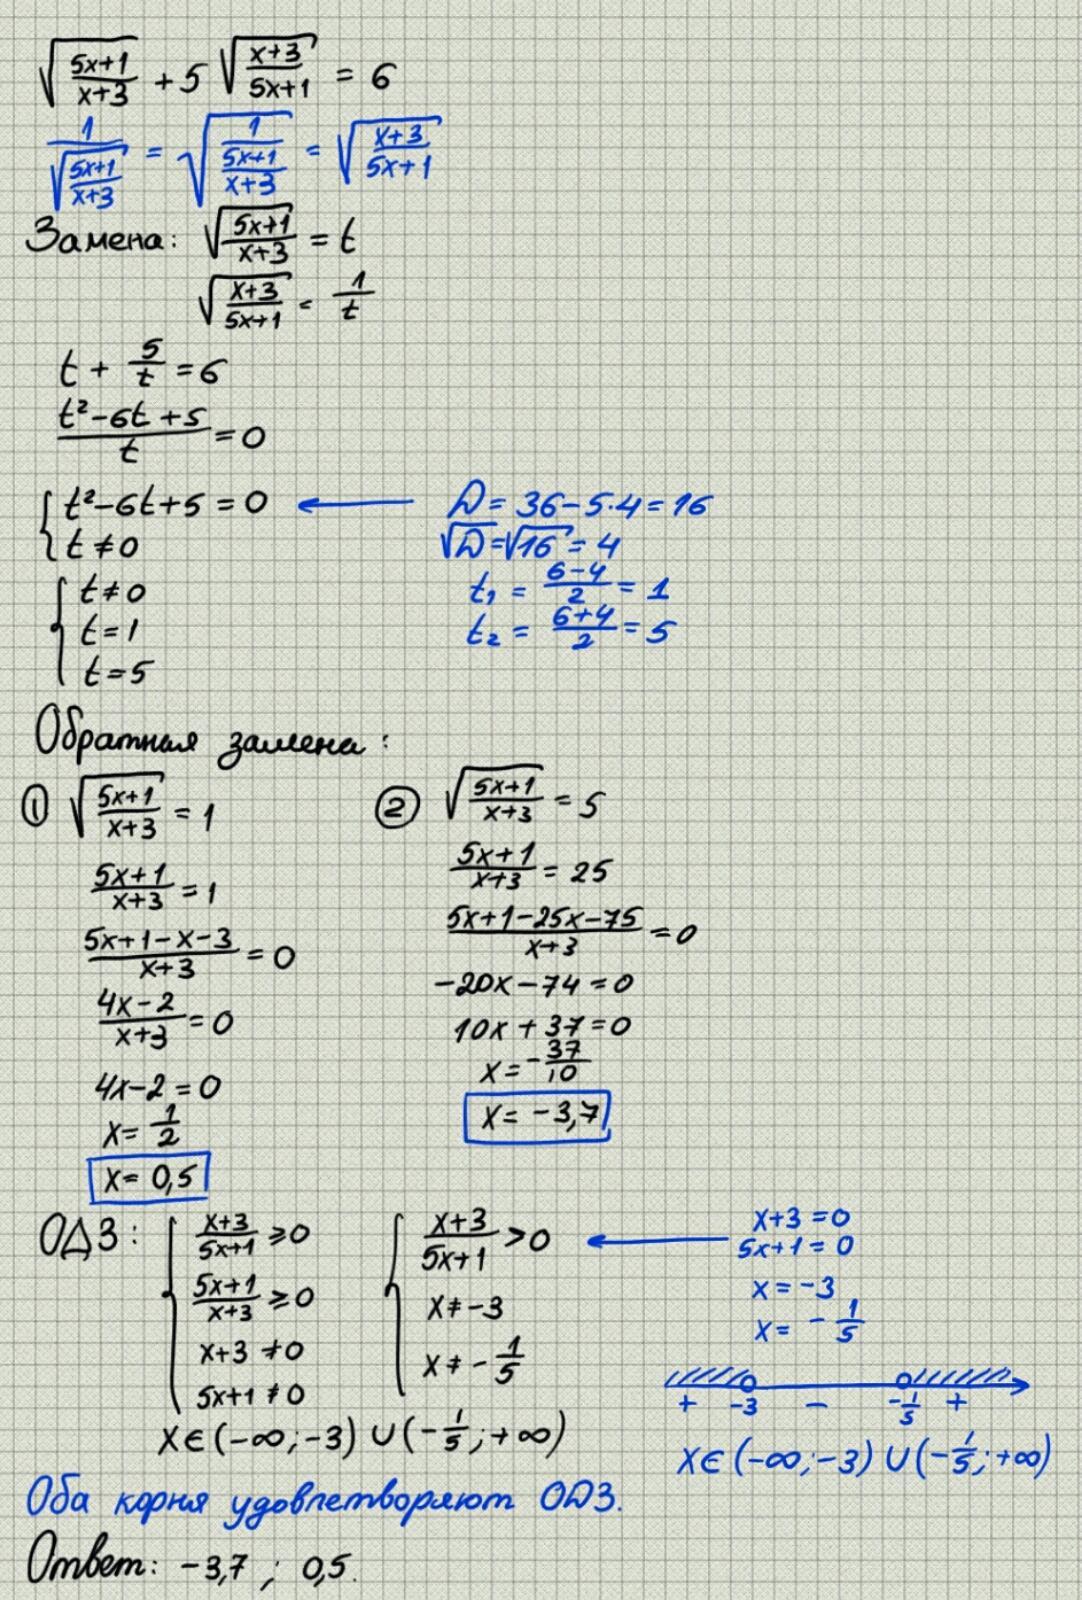 √((5x+1)/(x+3)) + 5 √((x+3)/(5x+1)) = 6
1/√((5x+1)/(x+3)) = √(1/((5x+1)/(x+3))) = √((x+3)/(5x+1))
Замена: √((5x+1)/(x+3)) = t
√((x+3)/(5x+1)) = 1/t
t + 5/t = 6
(t²-6t+5)/t = 0
{ t²-6t+5 = 0 ← D = 36-5·4 = 16
t ≠ 0 √D = √16 = 4
{ t ≠ 0 t₁ = (6-4)/2 = 1
t = 1 t₂ = (6+4)/2 = 5
t = 5
Обратная замена:
① √((5x+1)/(x+3)) = 1
(5x+1)/(x+3) = 1
(5x+1-x-3)/(x+3) = 0
(4x-2)/(x+3) = 0
4x-2 = 0
x = 1/2
x = 0,5
② √((5x+1)/(x+3)) = 5
(5x+1)/(x+3) = 25
(5x+1-25x-75)/(x+3) = 0
-20x-74 = 0
10x + 37 = 0
x = -37/10
x = -3,7
ОДЗ: { (x+3)/(5x+1) ⩾ 0
(5x+1)/(x+3) ⩾ 0
x+3 ≠ 0
5x+1 ≠ 0
{ (x+3)/(5x+1) > 0 ←
x ≠ -3
x ≠ -1/5
x+3 = 0
5x+1 = 0
x = -3
x = -1/5
+ -3 - -1/5 +
x∈(-∞;-3) ∪ (-1/5;+∞)
x∈(-∞;-3) ∪ (-1/5;+∞)
Оба корня удовлетворяют ОДЗ.
Ответ: -3,7 ; 0,5.